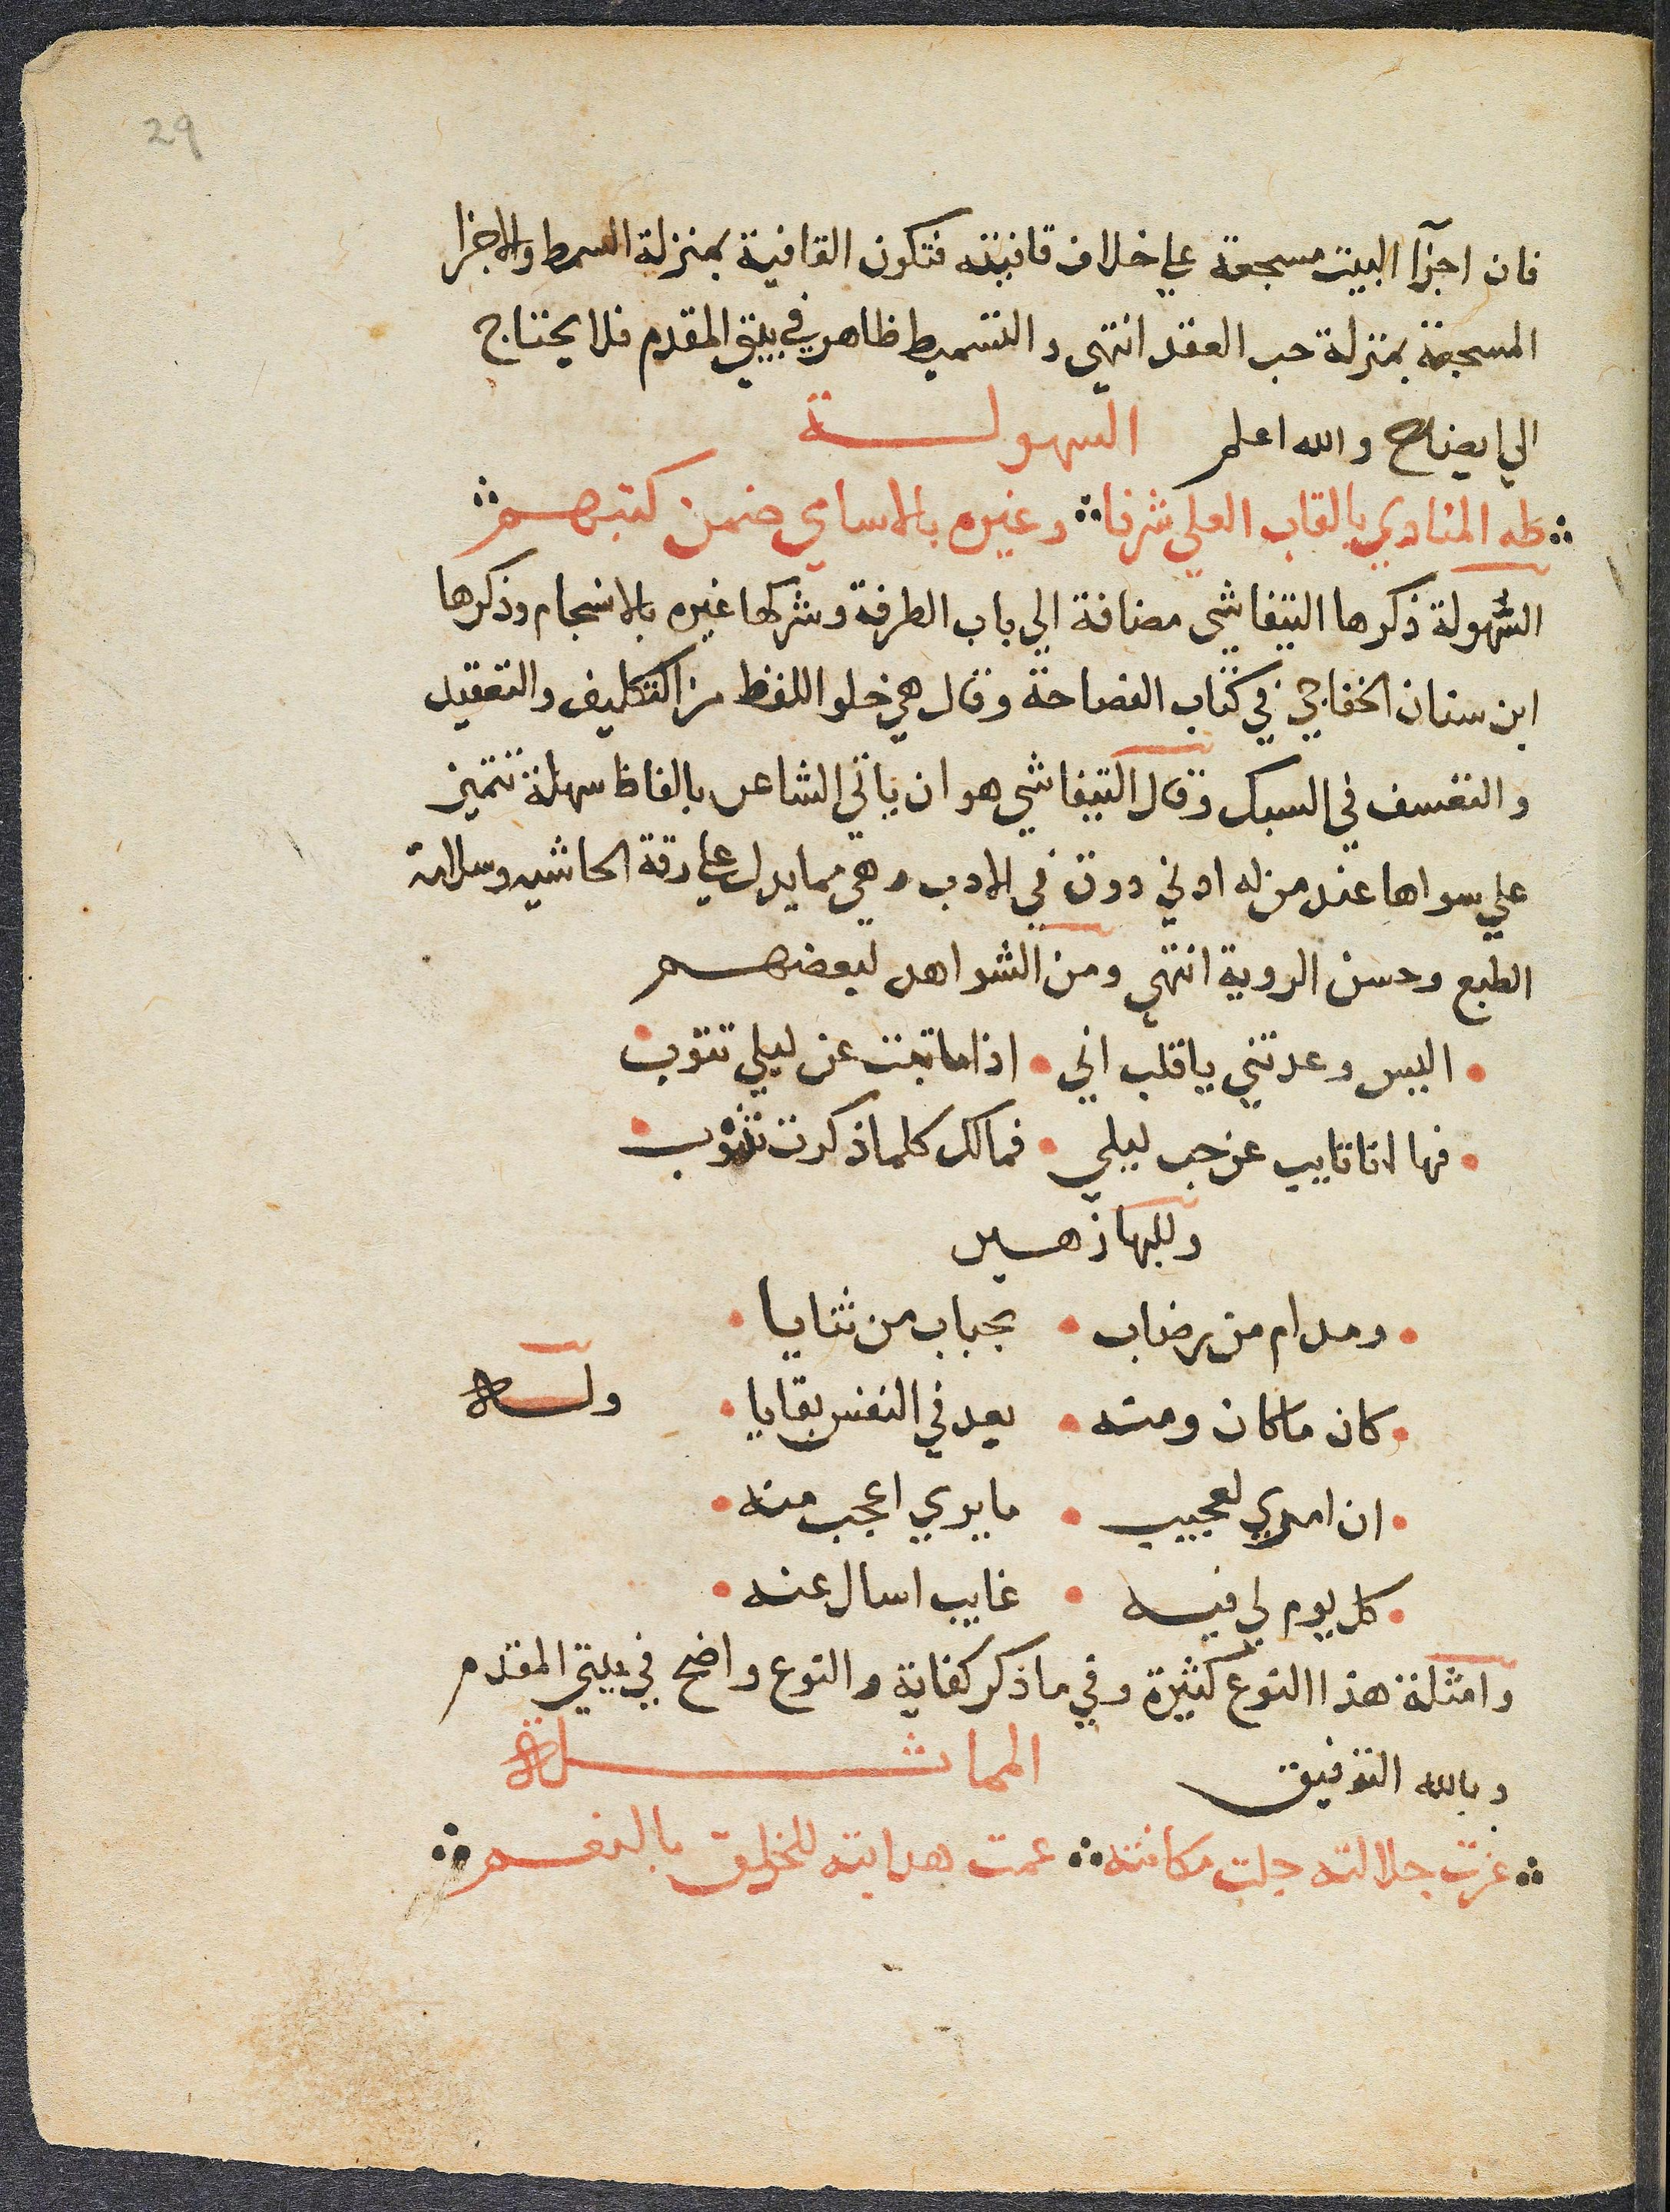 29
فان اجزآ البيت مسجعة علي خلاف قافيته فتكون القافية بمنزلة السمط والاجزا
المسجعة بمنزلة حب العقد انتهي والتسميط ظاهر في بيتي المقدم فلا يحتاج
الي ايضاح والله اعلم السهولة
طه المنادي بالقاب العلي شرفا وغيره بالاسامي ضمن كتبهم
السهولة ذكرها التيفاشي مضافة الي باب الطرفة وشركها غيره بالانسجام وذكرها
ابن سنان الخفاجي في كتاب الفصاحة وقال هي خلو اللفظ من التكليف والتعقيد
والتعسف في السبك وقال التيفاشي هو ان ياتي الشاعر بالفاظ سهلة تتميز
علي سواها عند من له ادني ذوق في الادب وهي مما يدل علي رقة الحاشيه وسلامة
الطبع وحسن الروية انتهي ومن الشواهد لبعضهم
اليس وعدتني يا قلب اني اذا ما تبت عن ليلي تتوب
فها انا تايب عن حب ليلي فمالك كلما ذكرت تذوب
وللبها زهير
ومدام من رضاب بحباب من ثنايا
كان ما كان ومنه بعد في النفس بقايا وله
ان امري لعجيب ما يري اعجب منه
كل يوم لي فيه غايب اسال عنه
وامثلة هذا النوع كثيرة وفي ما ذكر كفاية والنوع واضح في بيتي المقدم
وبالله التوفيق المماثلة
عزت جلالته جلت مكانته عمت هدايته للخلق بالنعم